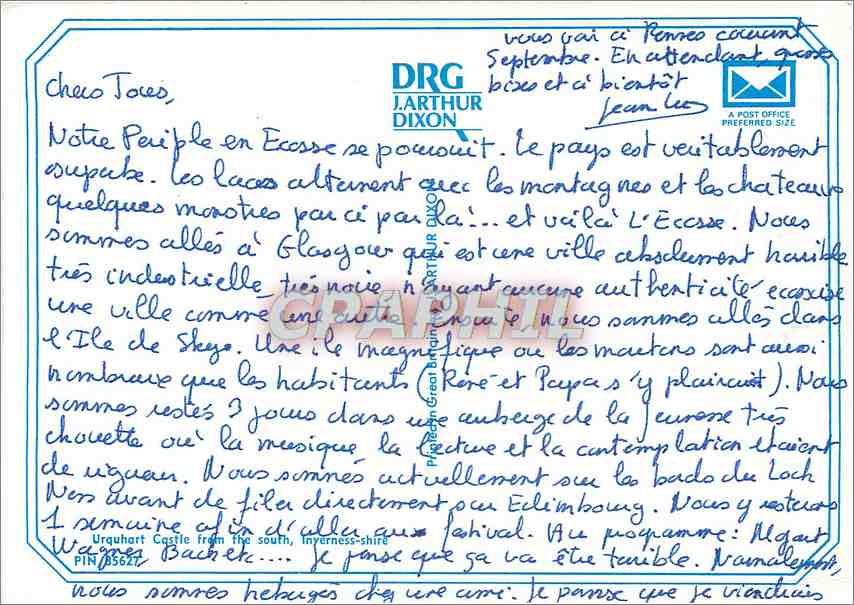 Chers Tous,
Notre Periple en Ecosse se poursuit. Le pays est veritablement
superbe. Les lacs alternent avec les montagnes et les chateaux
quelques monstres par ci par là... et voilà L'Ecosse. Nous
sommes allés à Glasgow qui est une ville absolument horrible
très industrielle, très noire, n'ayant aucune authenticité écossaise
une ville comme une autre. Ensuite, nous sommes allés dans
l'Ile de Skye. Une ile magnifique ou les moutons sont aussi
nombreux que les habitants (René et Papa s'y plairaient). Nous
sommes restés 3 jours dans une auberge de la jeunesse très
chouette où la musique, la lecture et la contemplation étaient
de rigueur. Nous sommes actuellement sur les bords du Loch
Ness avant de filer directement sur Edimbourg. Nous y resterons
1 semaine afin d'aller au festival. Au programme: Mozart
Wagner, Bach etc.... Je pense que ça va être terrible. Normalement,
nous sommes hebergés chez une amie. Je pense que je viendrais
vous voir à Rennes courant
Septembre. En attendant, grosses
bises et à bientôt
Jean Luc
DRG
J. ARTHUR
DIXON
A POST OFFICE
PREFERRED SIZE
Printed in Great Britain J. ARTHUR DIXON
Urquhart Castle from the south, Inverness-shire
PIN 85627
CPAPHIL